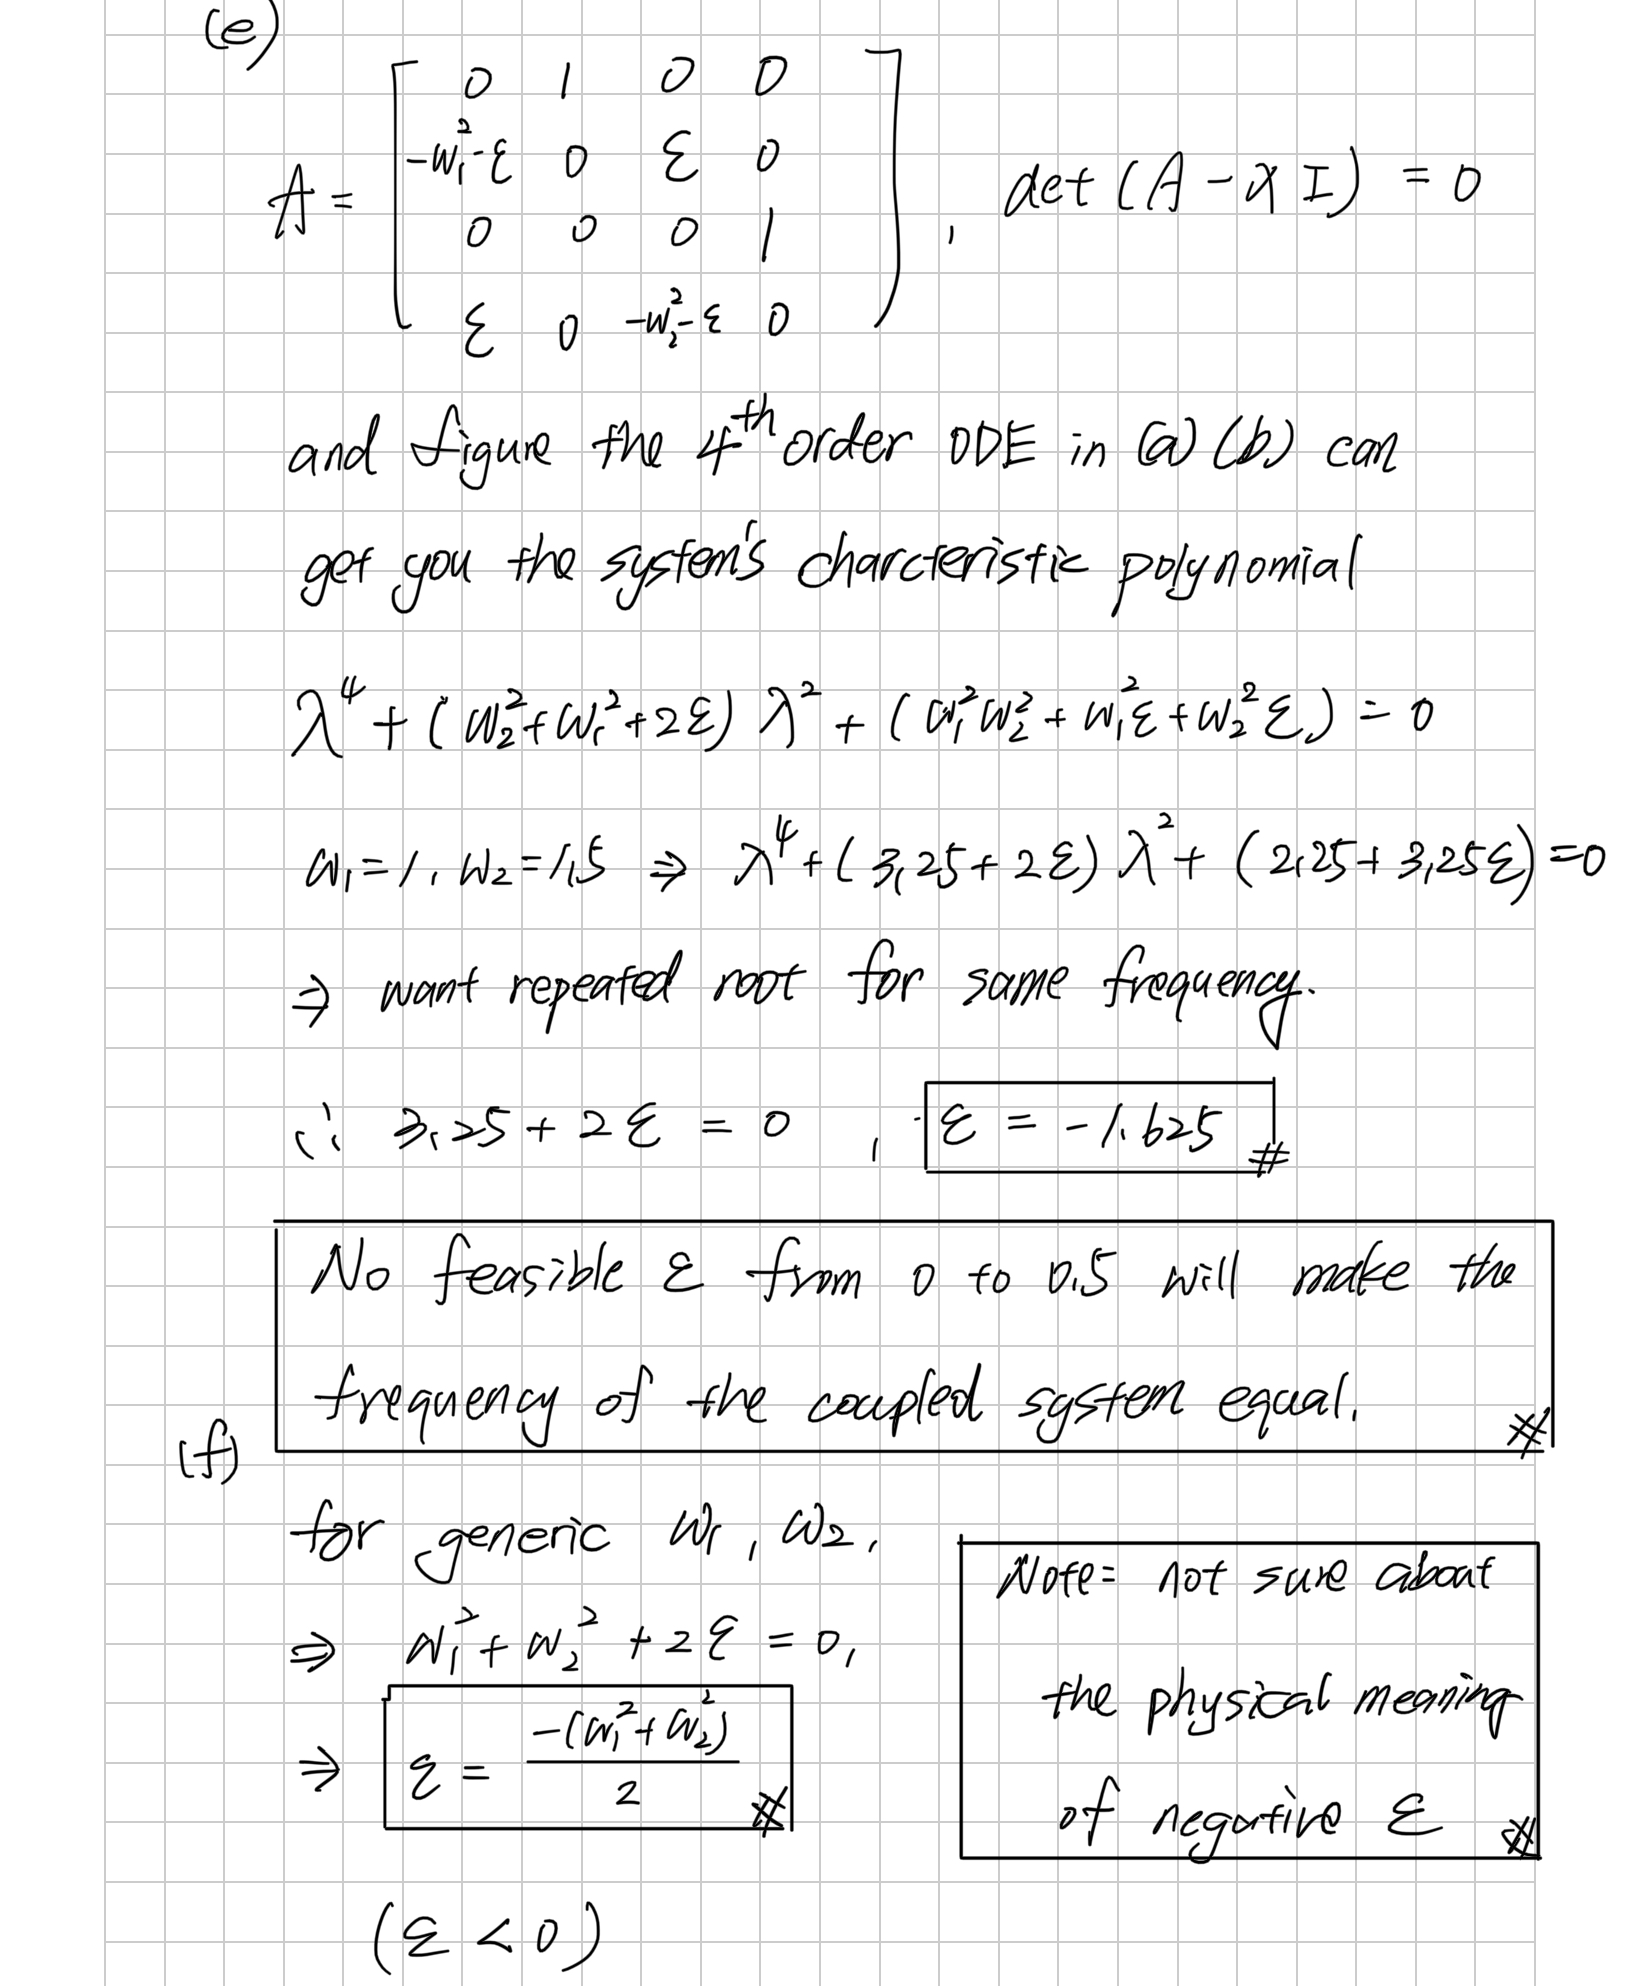 (e)
A = [ 0 1 0 0
-ω₁²-ε 0 ε 0
0 0 0 1
ε 0 -ω₂²-ε 0 ] , det (A - λI) = 0
and figure the 4th order ODE in (a) (b) can
get you the system's charcteristic polynomial
λ⁴ + (ω₂²+ω₁²+2ε) λ² + (ω₁²ω₂² + ω₁²ε + ω₂²ε) = 0
ω₁=1, ω₂=1.5 ⇒ λ⁴ + (3.25+2ε) λ² + (2.25+3.25ε) = 0
⇒ want repeated root for same frequency.
∴ 3.25 + 2ε = 0 , ε = -1.625 #
No feasible ε from 0 to 0.5 will make the
frequency of the coupled system equal. #
(f)
for generic ω₁, ω₂,
⇒ ω₁² + ω₂² + 2ε = 0,
⇒ ε = -(ω₁²+ω₂²) / 2 #
(ε < 0)
Note= not sure about
the physical meaning
of negative ε #